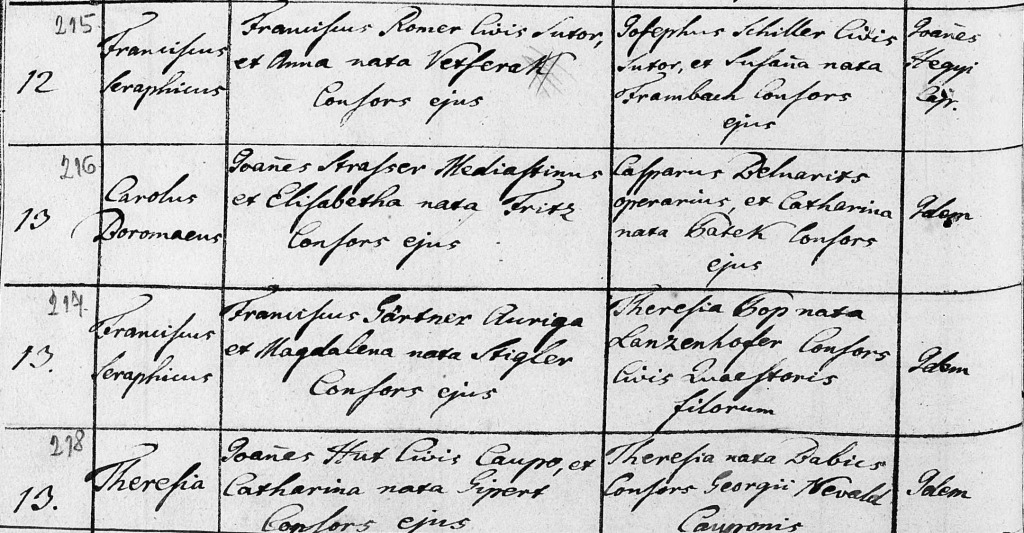 215
12
Franciscus
Seraphicus
Franciscus Romer Civis Sutor,
et Anna nata Vetserak
Consors ejus
Josephus Schiller Civis
Sutor, et Susaña nata
Frambach Consors
ejus
Joañes
Hegyi
Cap.
216
13
Carolus
Boromaeus
Joañes Strasser Mediastinus
et Elisabetha nata Fritz
Consors ejus
Casparus Beluarits
operarius, et Catharina
nata Batek Consors
ejus
Idem
217.
13.
Franciscus
Seraphicus
Franciscus Gärtner Auriga
et Magdalena nata Stigler
Consors ejus
Theresia Bop nata
Lanzenhofer Consors
Civis Quaestoris
filorum
Idem
218
13.
Theresia
Joañes Hut Civis Caupo, et
Catharina nata Gipert
Consors ejus
Theresia nata Babics
Consors Georgii Nevald
Cauponis
Idem